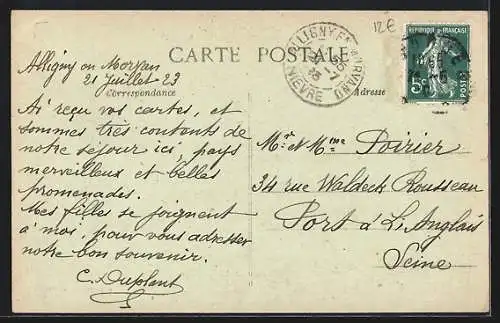 12€
CARTE POSTALE
ALLIGNY EN MORVAN
NIEVRE
5c
POSTES
Alligny en Morvan
21 Juillet - 23
Correspondance
Adresse
Ai reçu vos cartes, et
sommes très contents de
notre séjour ici, pays
merveilleux et belles
promenades.
Mes filles se joignent
à moi, pour vous adresser
notre bon souvenir.
C. Duplant
Mr et Mme Poirier
34 rue Waldeck Rousseau
Port à L'Anglais
Seine